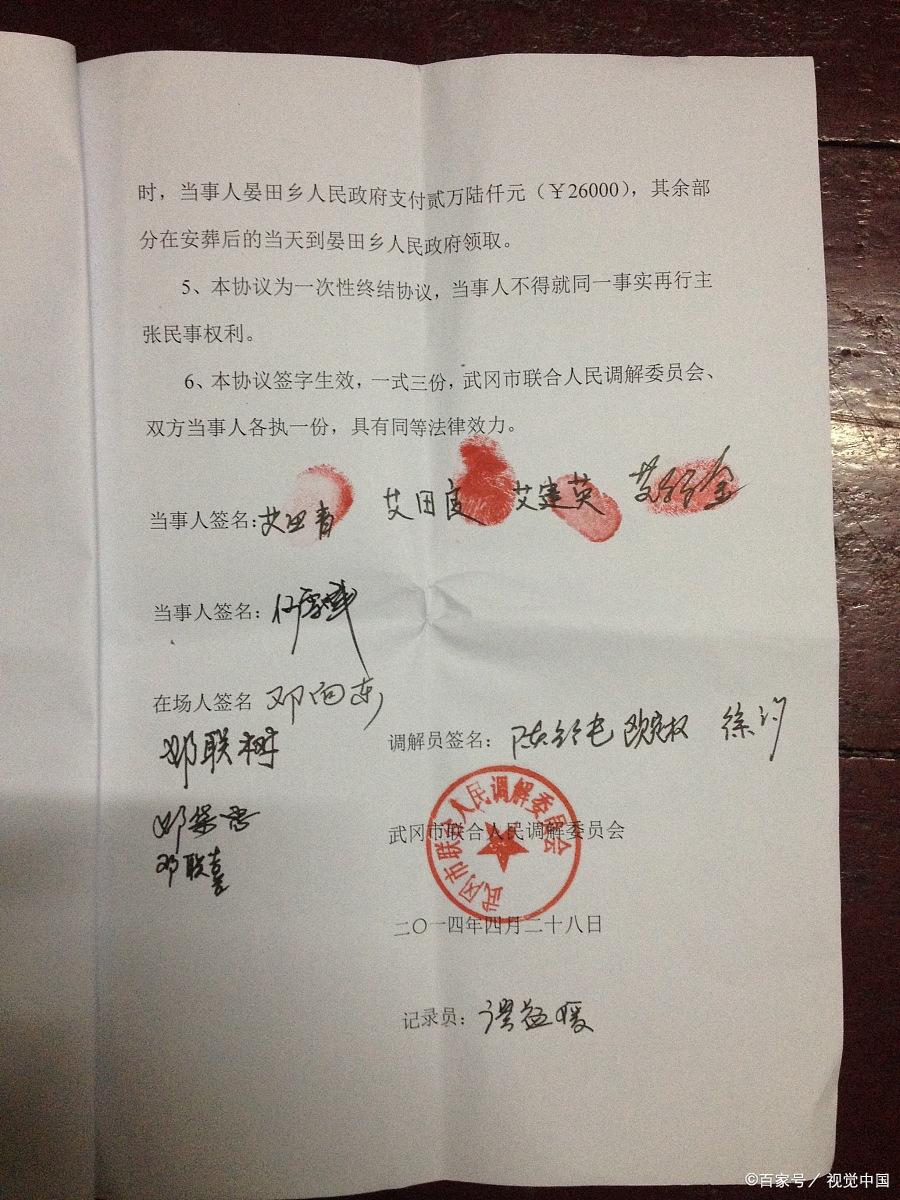 时，当事人晏田乡人民政府支付贰万陆仟元（￥26000），其余部
分在安葬后的当天到晏田乡人民政府领取。
5、本协议为一次性终结协议，当事人不得就同一事实再行主
张民事权利。
6、本协议签字生效，一式三份，武冈市联合人民调解委员会、
双方当事人各执一份，具有同等法律效力。
当事人签名：艾田青 艾田度 艾建英
当事人签名：
在场人签名 邓向东
邓联树
调解员签名：
邓联喜
武冈市联合人民调解委员会
武冈市联合人民调解委员会
二〇一四年四月二十八日
记录员：谭益媛
©百家号／视觉中国